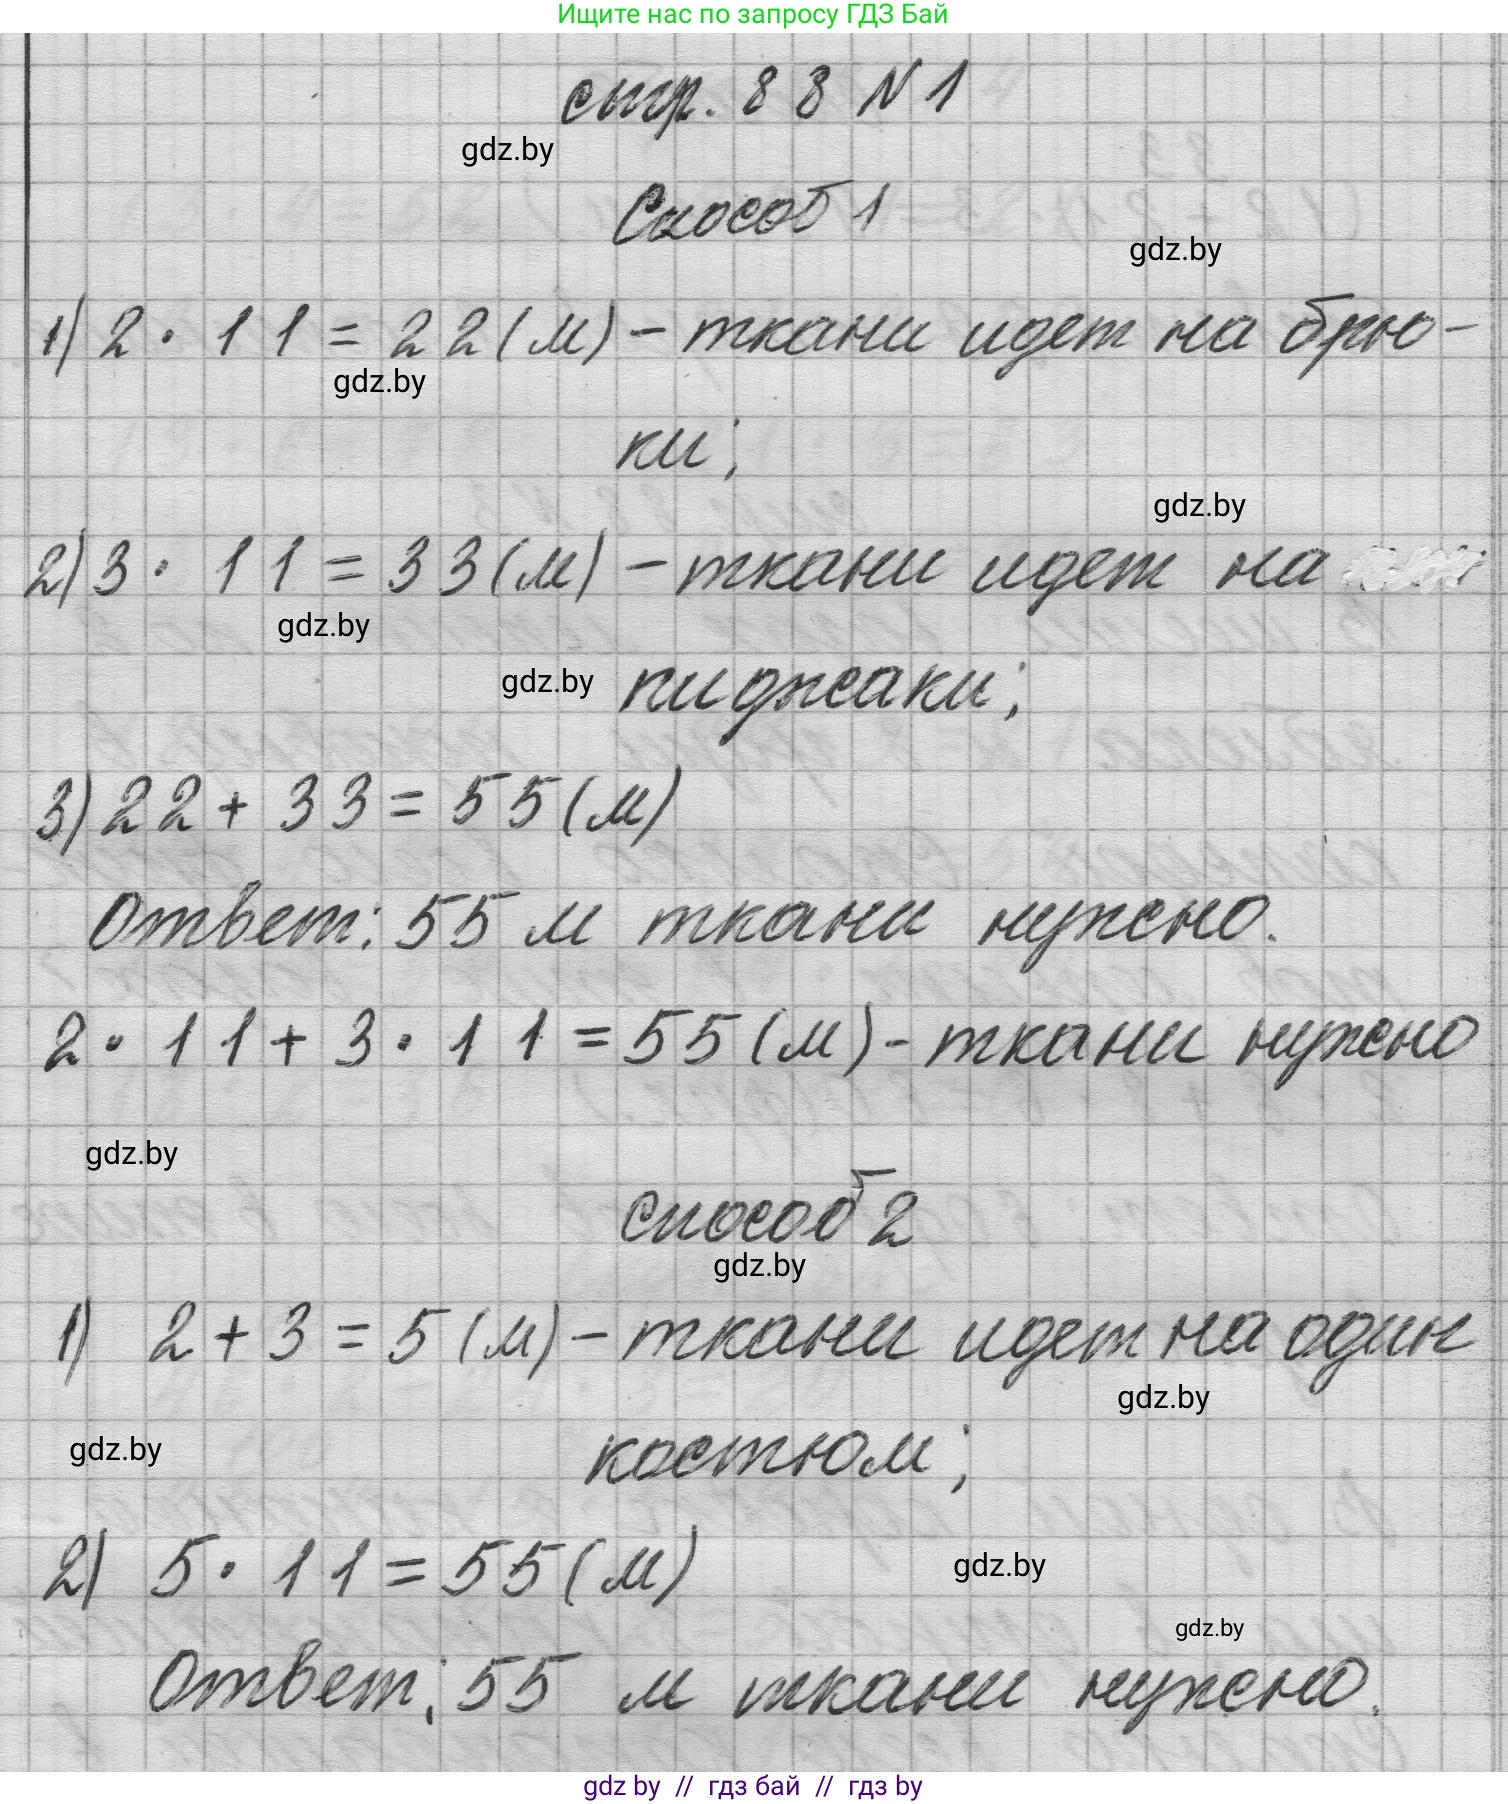 Ищите нас по запросу ГДЗ Бай
стр. 88 N 1
gdz.by
Способ 1
gdz.by
1) 2 · 11 = 22 (м) - ткани идет на брю-
gdz.by
ки;
gdz.by
2) 3 · 11 = 33 (м) - ткани идет на
gdz.by
gdz.by
пиджаки;
3) 22 + 33 = 55 (м)
Ответ: 55 м ткани нужно.
2 · 11 + 3 · 11 = 55 (м) - ткани нужно
gdz.by
способ 2
gdz.by
1) 2 + 3 = 5 (м) - ткани идет на один
gdz.by
gdz.by
костюм;
2) 5 · 11 = 55 (м)
gdz.by
gdz.by
Ответ: 55 м ткани нужно.
gdz by // гдз бай // гдз by